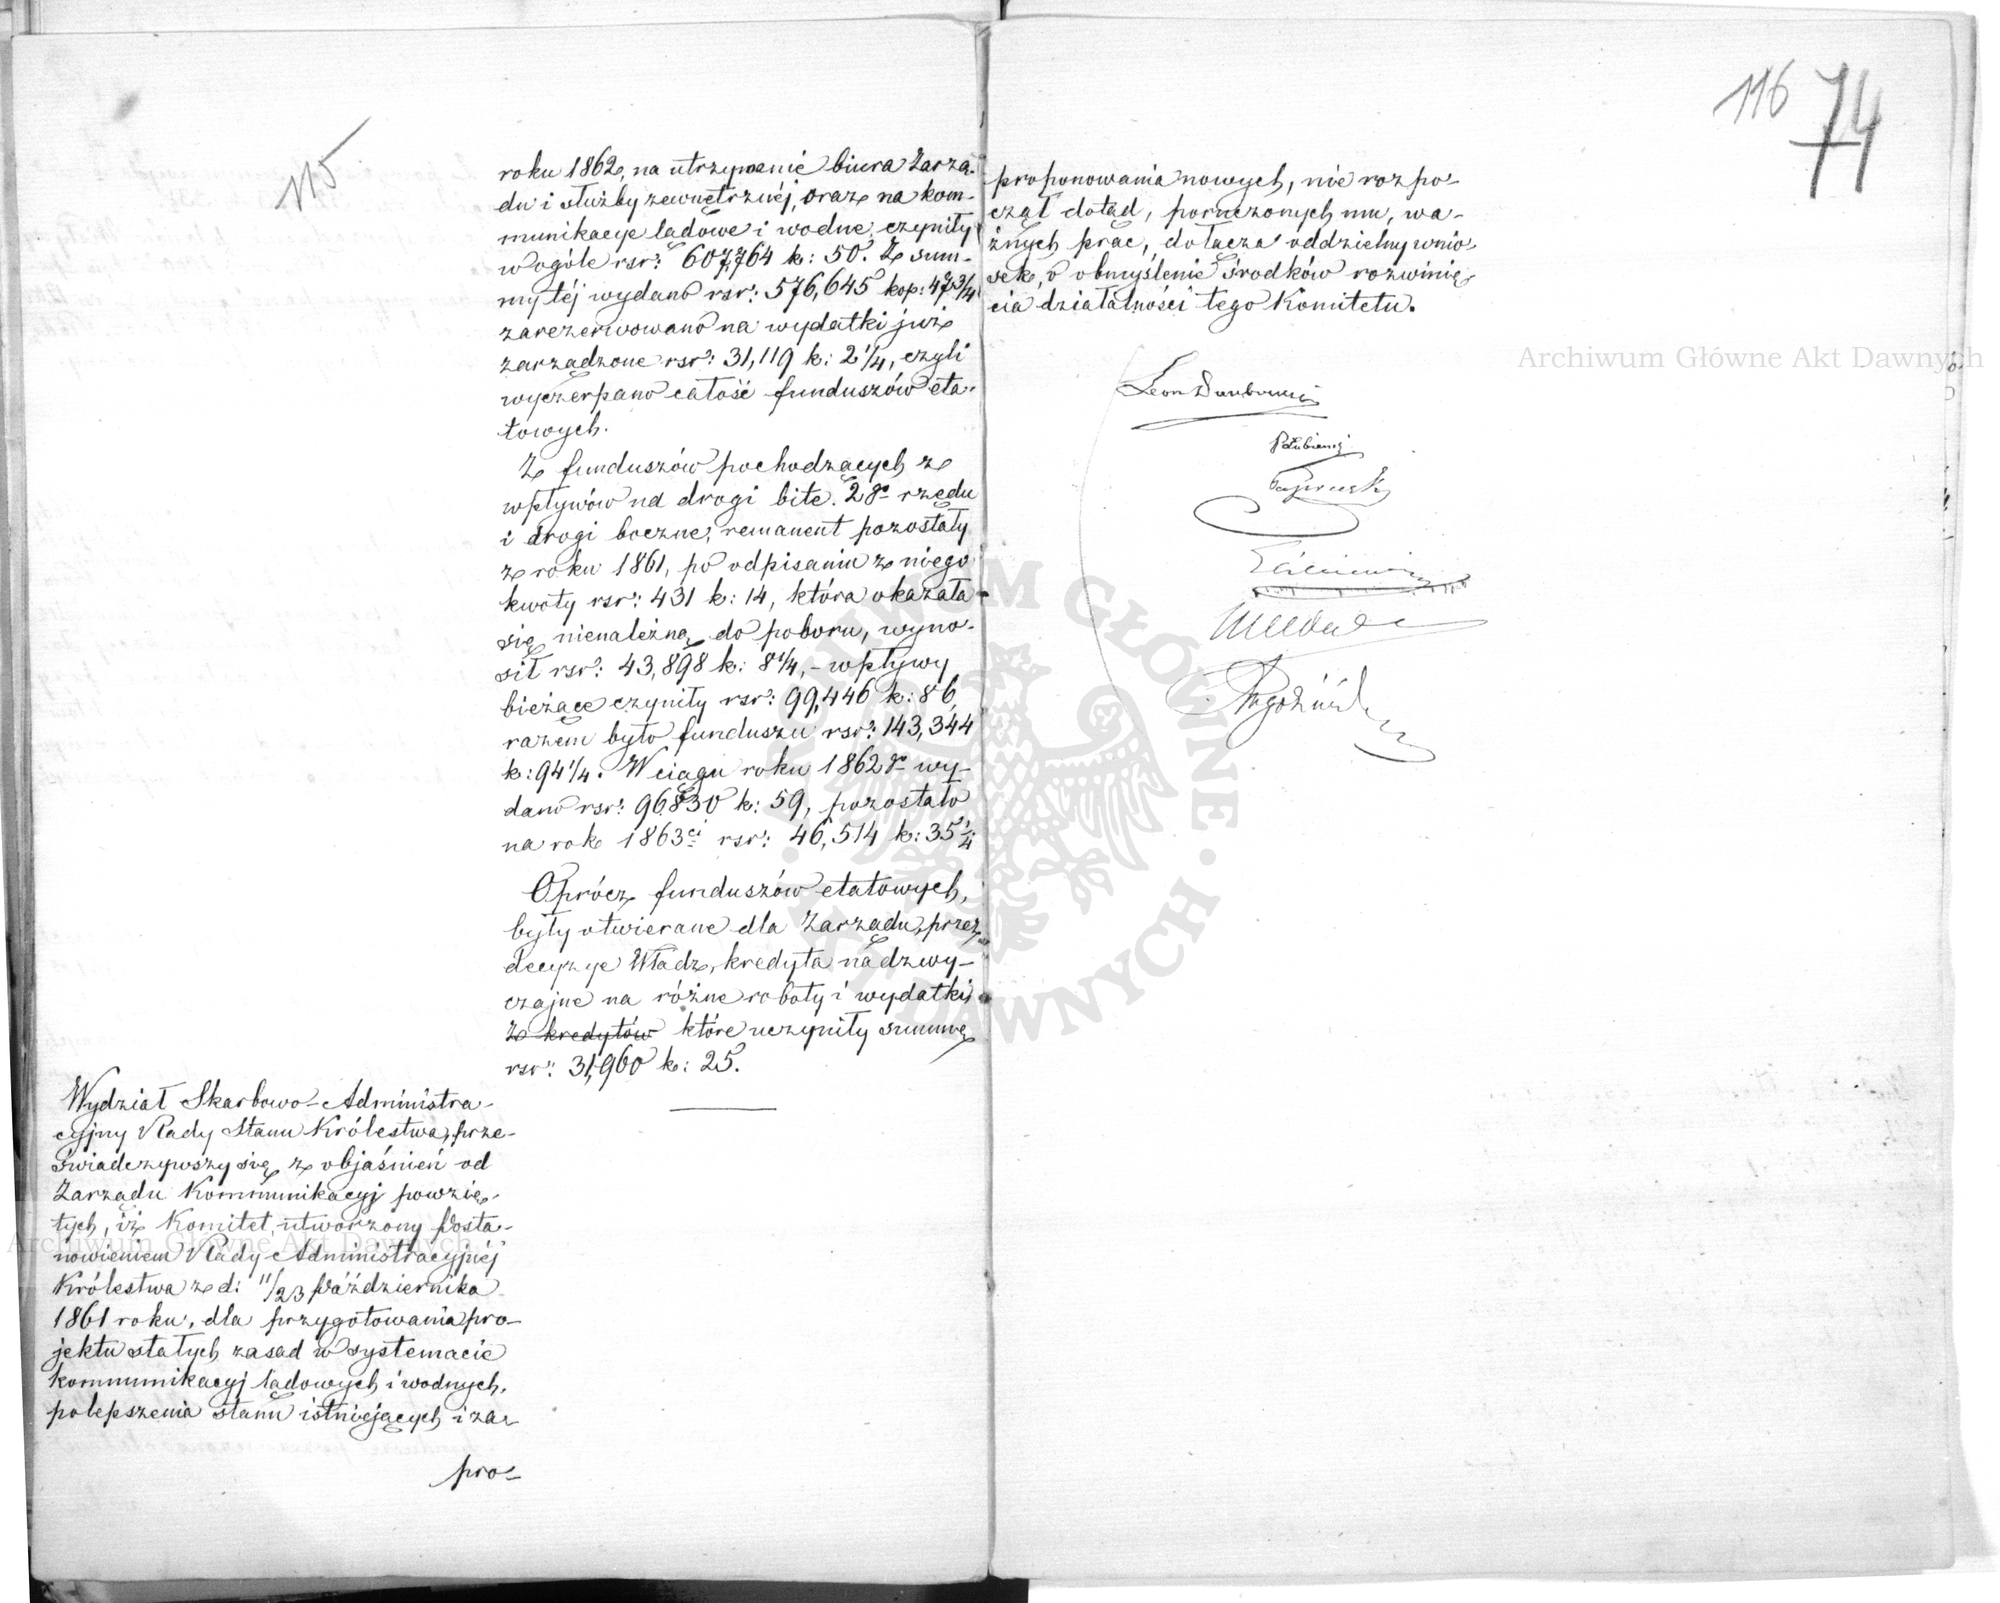 115
roku 1862, na utrzymanie biura Zarzą-
du i służby zewnętrznéj, oraz na kom-
munikacye lądowe i wodne, czyniły
w ogóle rsr: 607,764 k: 50. Z sum-
my téj wydano rsr: 576,645 kop: 47 3/4
zarezerwowano na wydatki już
zarządzone rsr: 31,119 k: 2 1/4, czyli
wyczerpano całość funduszów eta-
towych.
Z funduszów pochodzących z
wpływów na drogi bite 2go rzędu
i drogi boczne, remanent pozostały
z roku 1861, po odpisaniu z niego
kwoty rsr: 431 k: 14, która okazała
się nienależną do poboru, wyno-
sił rsr: 43,898 k: 8 1/4, - wpływy
bieżące czyniły rsr: 99,446 k: 86,
razem było funduszu rsr: 143,344
k: 94 1/4. W ciągu roku 1862go wy-
dano rsr: 96830 k: 59, pozostało
na rok 1863ci rsr: 46,514 k: 35 1/4
Oprócz funduszów etatowych,
były otwierane dla Zarządu, przez
decyzye Władz, kredyta nadzwy-
czajne na różne roboty i wydatki,
z kredytów które uczyniły summę
rsr: 31,960 k: 25.
Wydział Skarbowo-Administra-
cyjny Rady Stanu Królestwa, prze-
świadczywszy się z objaśnień od
Zarządu Kommunikacyj powzię-
tych, iż Komitet, utworzony Posta-
nowieniem Rady Administracyjnéj
Królestwa z d: 11/23 Października
1861 roku, dla przygotowania pro-
jektu stałych zasad w systemacie
kommunikacyj lądowych i wodnych,
polepszenia stanu istniejących i za-
pro-
116 74
proponowania nowych, nie rozpo-
czął dotąd, poruczonych mu, wa-
żnych prac, dołącza oddzielny wnio-
sek, o obmyślenie środków rozwinię-
cia działalności tego Komitetu.
Leon Dembowski
PŁubieński
Archiwum Główne Akt Dawnych
Archiwum Główne Akt Dawnych
ARCHIWUM GŁÓWNE AKT DAWNYCH